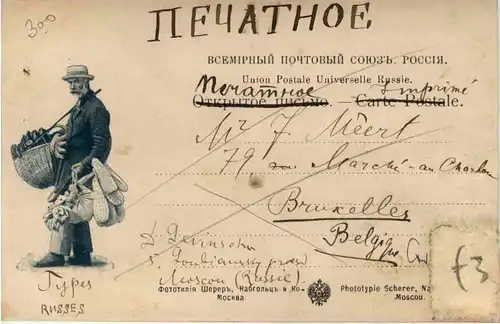 ПЕЧАТНОЕ
300
ВСЕМІРНЫЙ ПОЧТОВЫЙ СОЮЗЪ. РОССІЯ.
Union Postale Universelle Russie.
Печатное Imprimé
Открытое письмо. — Carte Postale.
Mr J. Méert
79, rue Marché-au-Charbon
Bruxelles
Belgique
Moscou (Russie)
Types
RUSSES
Фототипія Шереръ, Набгольцъ и Ко.
Москва
Phototypie Scherer, Na
Moscou.
£3